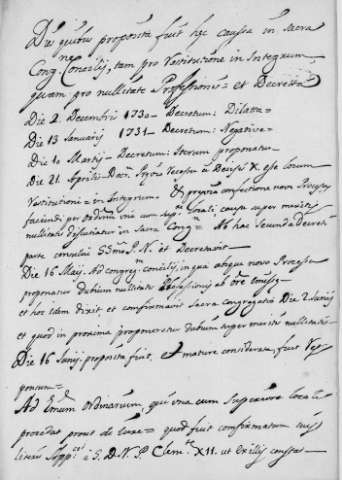 Dies quibus proposita fuit hęc causa in sacra
Cong.ne Concilij, tam pro restitutione in Integrum,
quam pro nullitate Professionis et Decreta
Die 2. Decembris 1730 - Decretum: Dilata =
Die 13 Januarij 1731 - Decretum: Negative =
Die 10 Martij - Decretum: Iterum proponatur
Die 21 Aprilis - Decr. recessu a Decisis et esse locum
restitutioni in Integrum. Et proposita confectione novi Processus
faciendi per ordinarium una cum causa super meritis
nullitatis disputatur in Sacra Cong.ne Ab hac secunda Decreti
parte consului SS.mo D. N. et Decretavit
Die 16 Maij. Ad congreg.m concilij, in qua absque novo Processu
proponatur dubium nullitatis Professionis
et hoc idem dixit, et confirmavit Sacra Congregatio Die 2 Junij
et quod in proxima proponeretur dubium super meritis nullitatis =
Die 16 Junij proposita fuit, et mature considerata, fuit Res
ponsum =
Ad Ordinarium, qui una cum Superiore locali
procedat prout de Iure = quod fuit confirmatum
literis a S. D. N. P. Clem.te XII. ut ex illis constat -